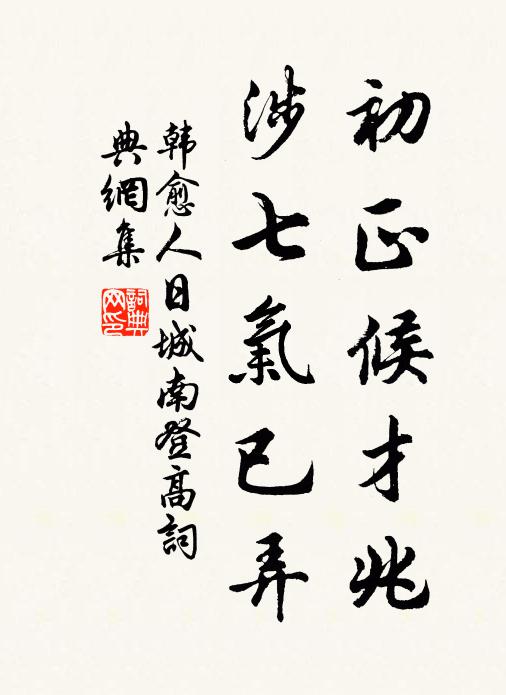 初正候才兆
涉七氣已弄
韓愈人日城南登高詞
典網集
詞典網印